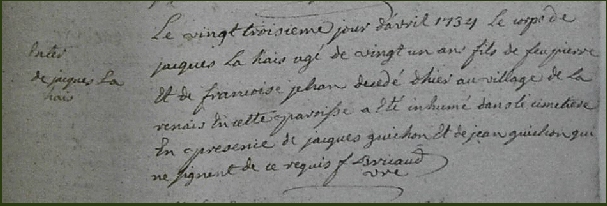 Enter
de jacques La
hais
Le vingt troisieme jour d'avril 1734 Le corps de
jacques La hais agé de vingt un ans fils de feu pierre
Et de francoise jehan decedé d'hier au village de La
renais En cette paroisse a Eté inhumé dans le cimetiere
En presence de jacques guichon Et de jean guichon qui
ne signent de ce requis f
vre